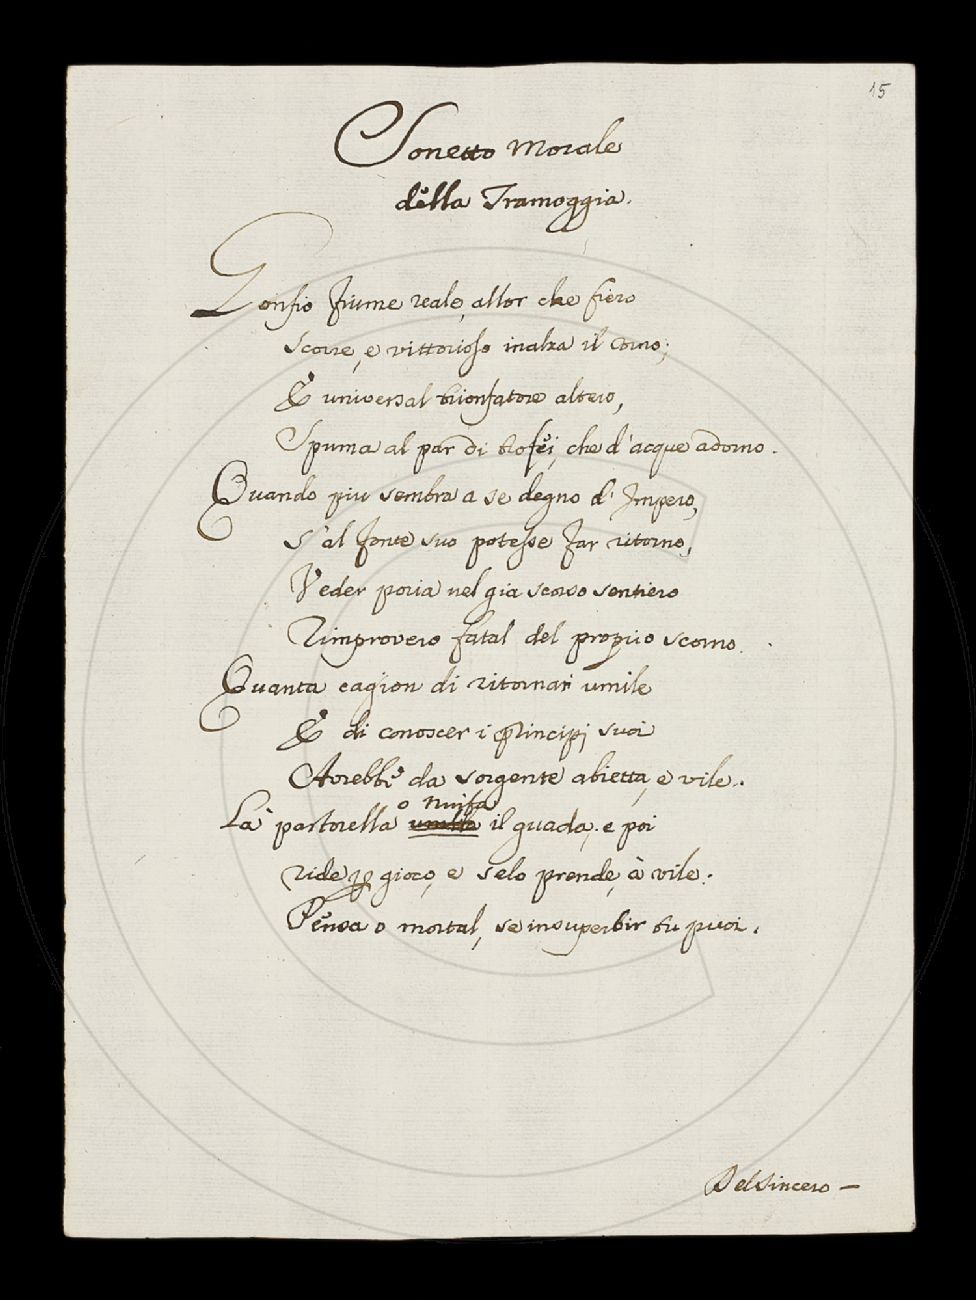 15
Sonetto Morale
della Tramoggia.
Gonfio fiume reale, allor che fiero
Scorre, e vittorioso inalza il corno;
E universal trionfatore altero,
Spuma al par di trofei, che d'acque adorno.
Quando piu sembra a se degno d'Impero,
S'al fonte suo potesse far ritorno,
Veder poria nel gia scorso sentiero
Rimprovero fatal del proprio scorno.
Quanta cagion di ritornar umile
E di conoscer i principj suoi
Avrebbe da sorgente abietta, e vile.
o Ninfa
La pastorella umile il guada, e poi
ride p gioco, e selo prende, à vile.
Pensa o mortal, se insuperbir tu puoi.
Del Sincero —